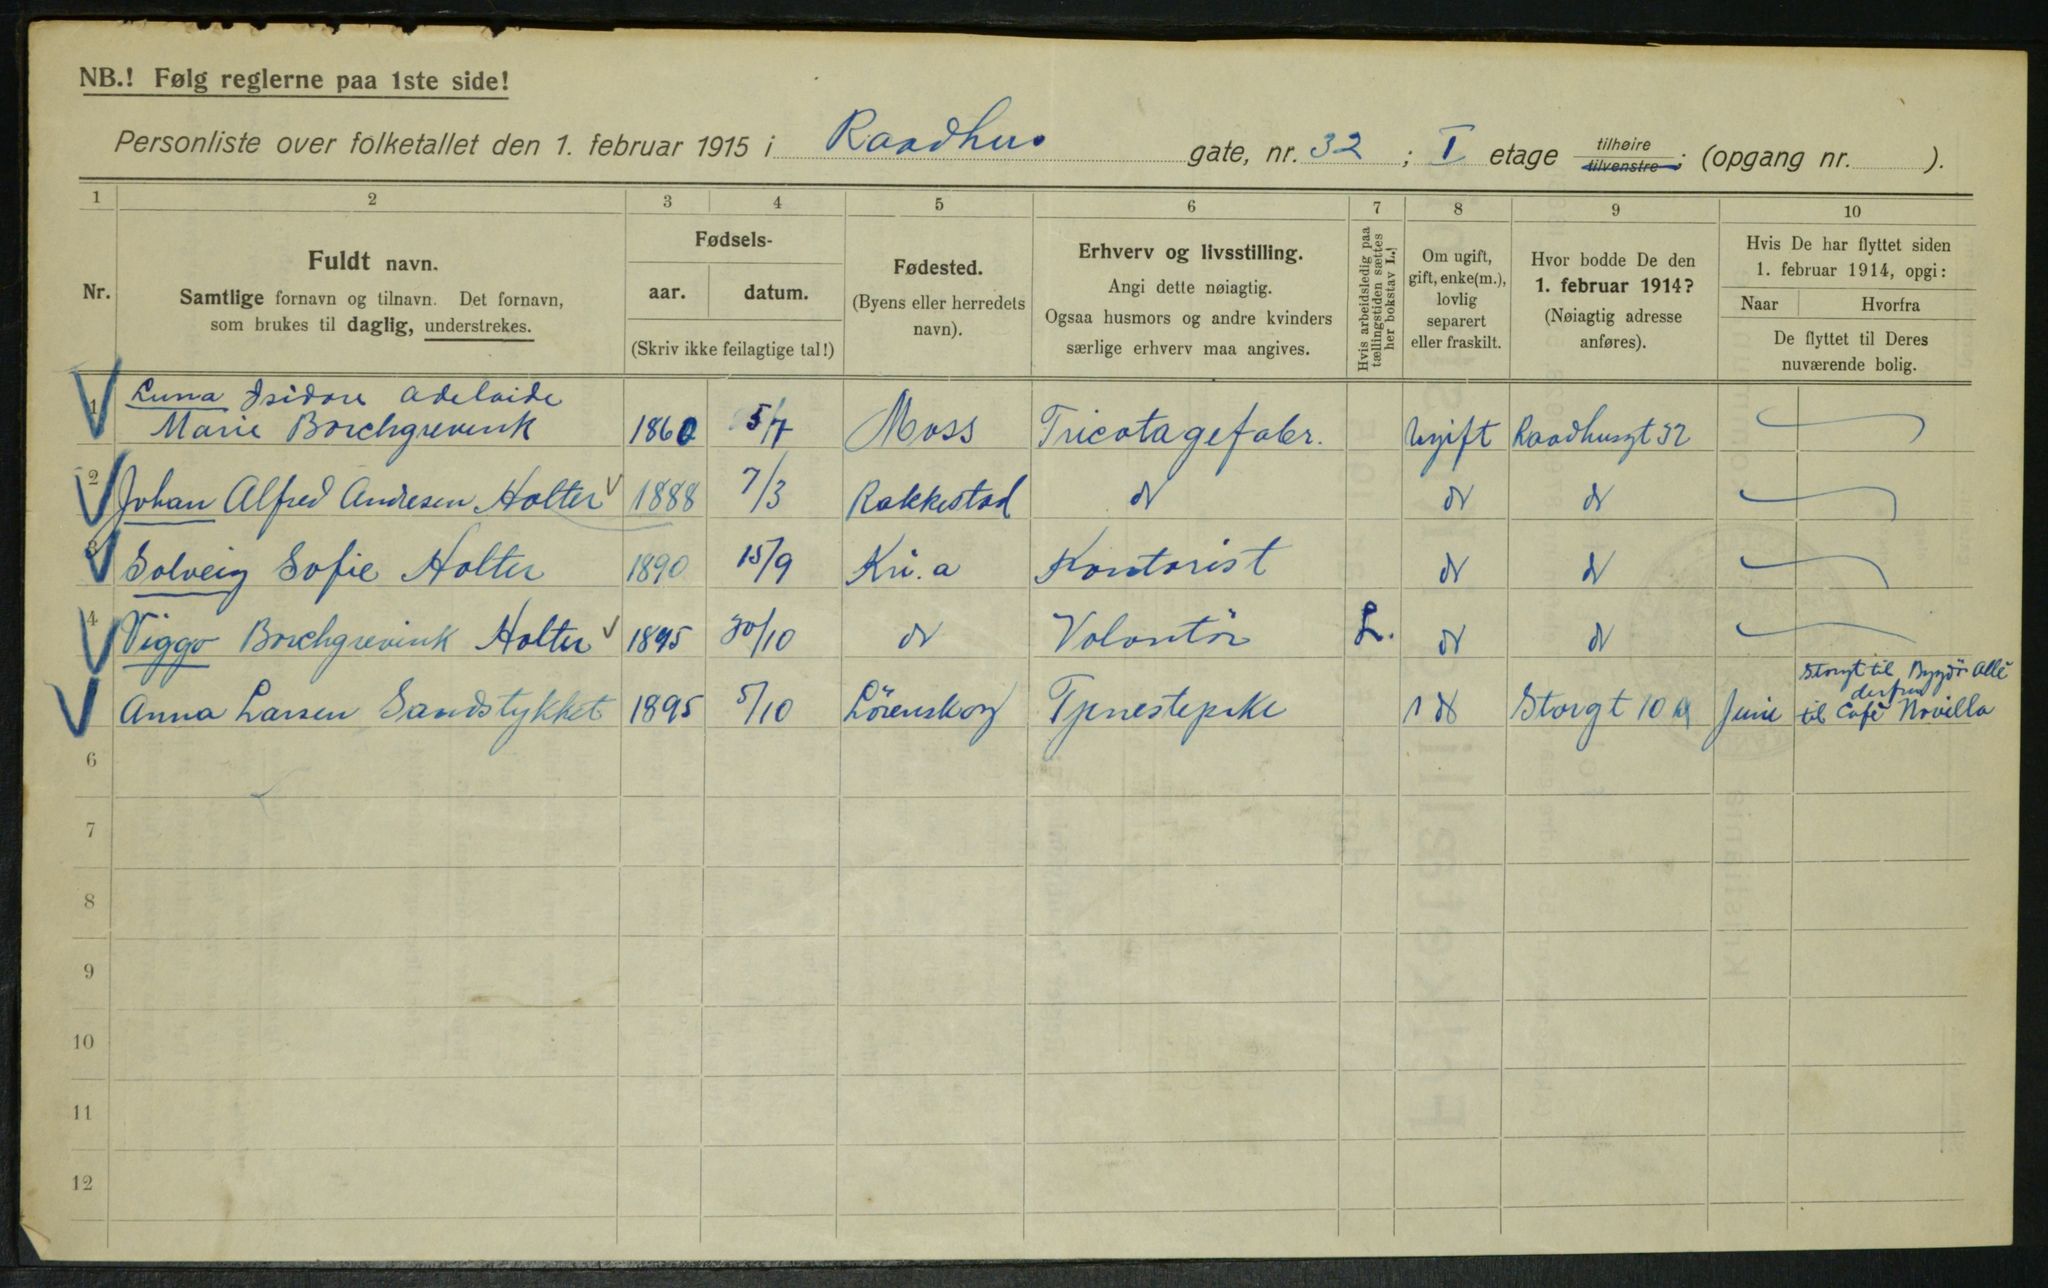 NB.! Følg reglerne paa 1ste side!
Personliste over folketallet den 1. februar 1915 i Raadhus gate, nr. 32 ; I etage tilhøire tilvenstre ; (opgang nr. ).
1 2 3 4 5 6 7 8 9 10
Nr.
Fuldt navn.
Samtlige fornavn og tilnavn. Det fornavn,
som brukes til daglig, understrekes.
Fødsels-
aar. datum.
(Skriv ikke feilagtige tal!)
Fødested.
(Byens eller herredets
navn).
Erhverv og livsstilling.
Angi dette nøiagtig.
Ogsaa husmors og andre kvinders
særlige erhverv maa angives.
Hvis arbeidsledig paa
tællingstiden sættes
her bokstav L.!
Om ugift,
gift, enke(m.),
lovlig
separert
eller fraskilt.
Hvor bodde De den
1. februar 1914?
(Nøiagtig adresse
anføres).
Hvis De har flyttet siden
1. februar 1914, opgi:
Naar Hvorfra
De flyttet til Deres
nuværende bolig.
1 Luna Isidore Adelaide
Marie Borchgrevink 1860 5/7 Moss Tricotagefabr. Ugift Raadhusgt 32
2 Johan Alfred Andresen Holter 1888 7/3 Rakkestad do do do
3 Solveig Sofie Holter 1890 15/9 Kri.a Kontorist do do
4 Viggo Borchgrevink Holter 1895 30/10 do Volontör L. do do
Anna Larsen Sandstykket 1895 5/10 Lörenskog Tjenestepike do Storgt 10 Juni
Storgt til Bygdö Allè
derfra
til Cafè Novilla
6
7
8
9
10
11
12